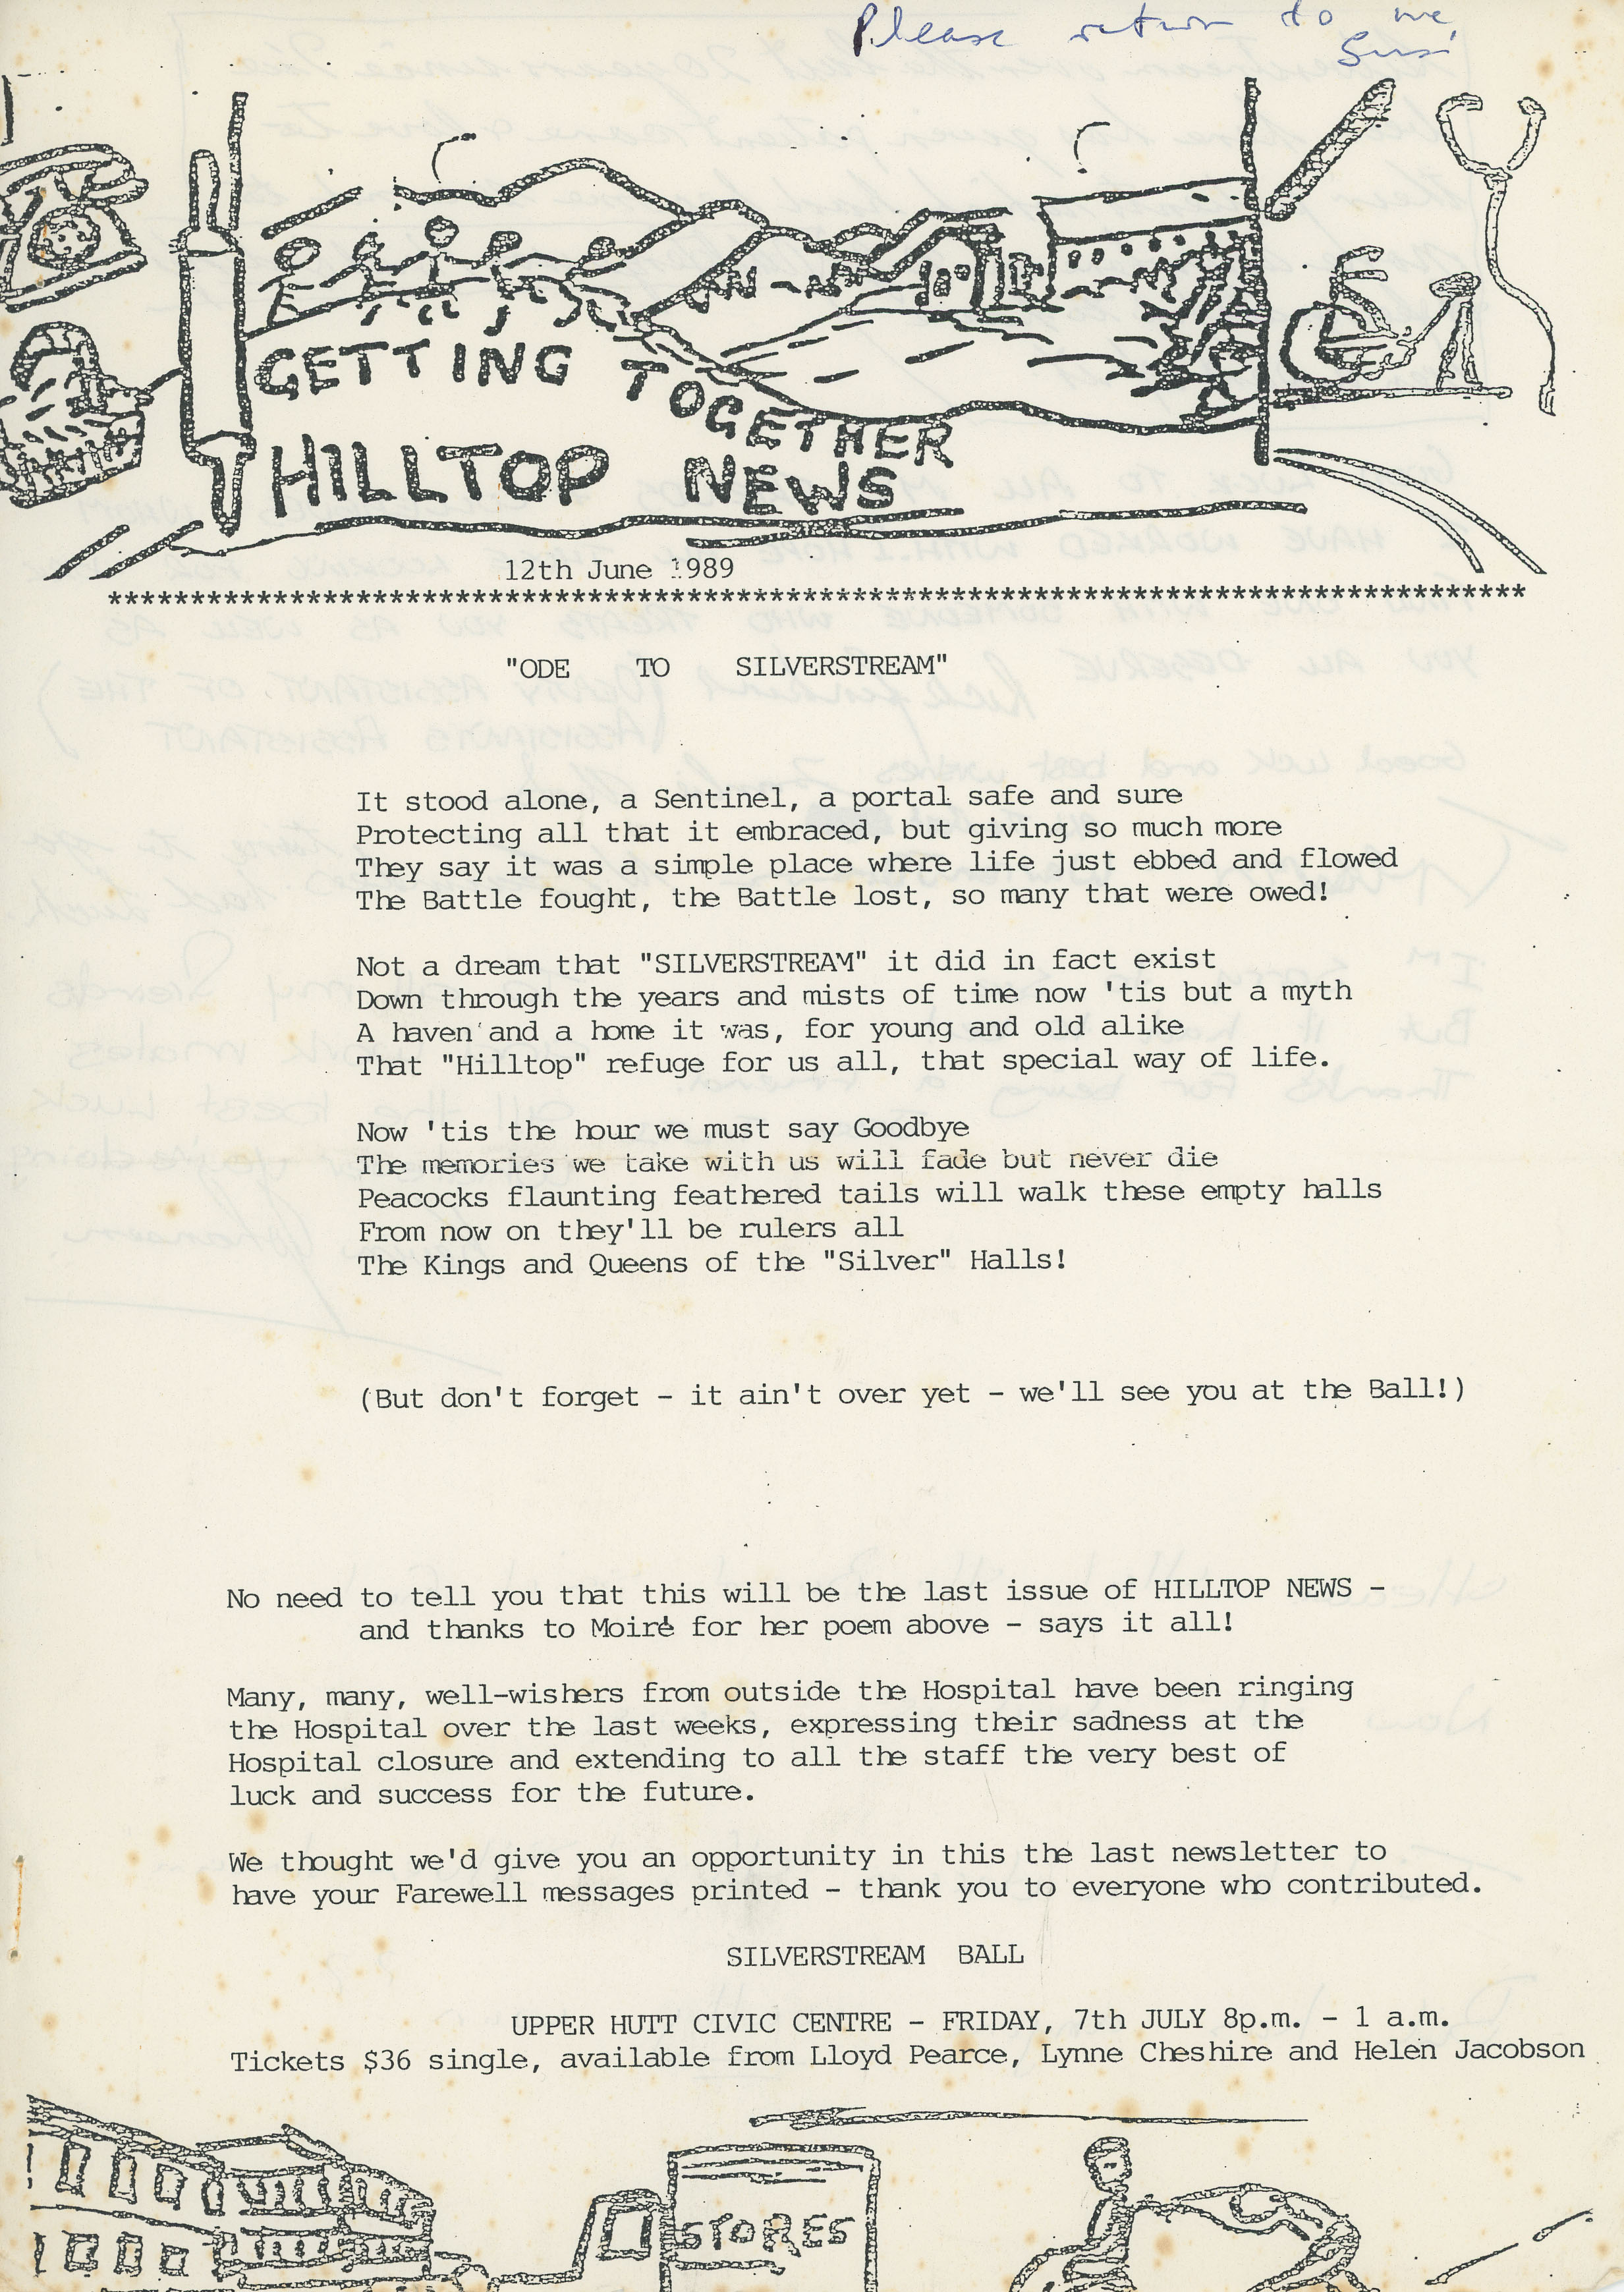 Please return to me
Susi
GETTING TOGETHER
HILLTOP NEWS
12th June 1989
**************************************************************************************
"ODE TO SILVERSTREAM"
It stood alone, a Sentinel, a portal safe and sure
Protecting all that it embraced, but giving so much more
They say it was a simple place where life just ebbed and flowed
The Battle fought, the Battle lost, so many that were owed!
Not a dream that "SILVERSTREAM" it did in fact exist
Down through the years and mists of time now 'tis but a myth
A haven and a home it was, for young and old alike
That "Hilltop" refuge for us all, that special way of life.
Now 'tis the hour we must say Goodbye
The memories we take with us will fade but never die
Peacocks flaunting feathered tails will walk these empty halls
From now on they'll be rulers all
The Kings and Queens of the "Silver" Halls!
(But don't forget - it ain't over yet - we'll see you at the Ball!)
No need to tell you that this will be the last issue of HILLTOP NEWS -
and thanks to Moiré for her poem above - says it all!
Many, many, well-wishers from outside the Hospital have been ringing
the Hospital over the last weeks, expressing their sadness at the
Hospital closure and extending to all the staff the very best of
luck and success for the future.
We thought we'd give you an opportunity in this the last newsletter to
have your Farewell messages printed - thank you to everyone who contributed.
SILVERSTREAM BALL
UPPER HUTT CIVIC CENTRE - FRIDAY, 7th JULY 8p.m. - 1 a.m.
Tickets $36 single, available from Lloyd Pearce, Lynne Cheshire and Helen Jacobson
STORES